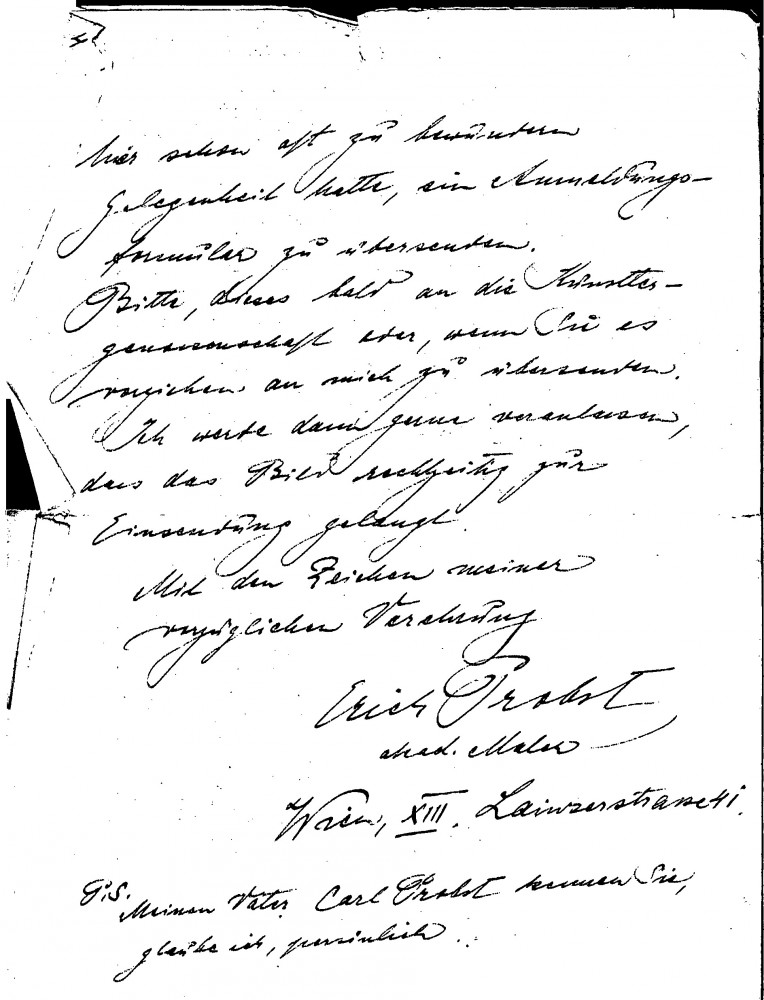 hier schon oft zu bewundern
Gelegenheit hatte, ein Anmeldungs-
formular zu übersenden.
Bitte, dieses bald an die Künstler-
genossenschaft oder, wenn Sie es
vorziehen an mich zu übersenden.
Ich werde dann gerne veranlassen,
dass das Bild rechtzeitig zur
Einsendung gelangt.
Mit den Zeichen meiner
vorzüglichen Verehrung
Erich Probst
akad. Maler
Wien, XIII. Lainzerstrasse 41.
P.S. Meinen Vater Carl Probst kennen Sie,
glaube ich, persönlich.